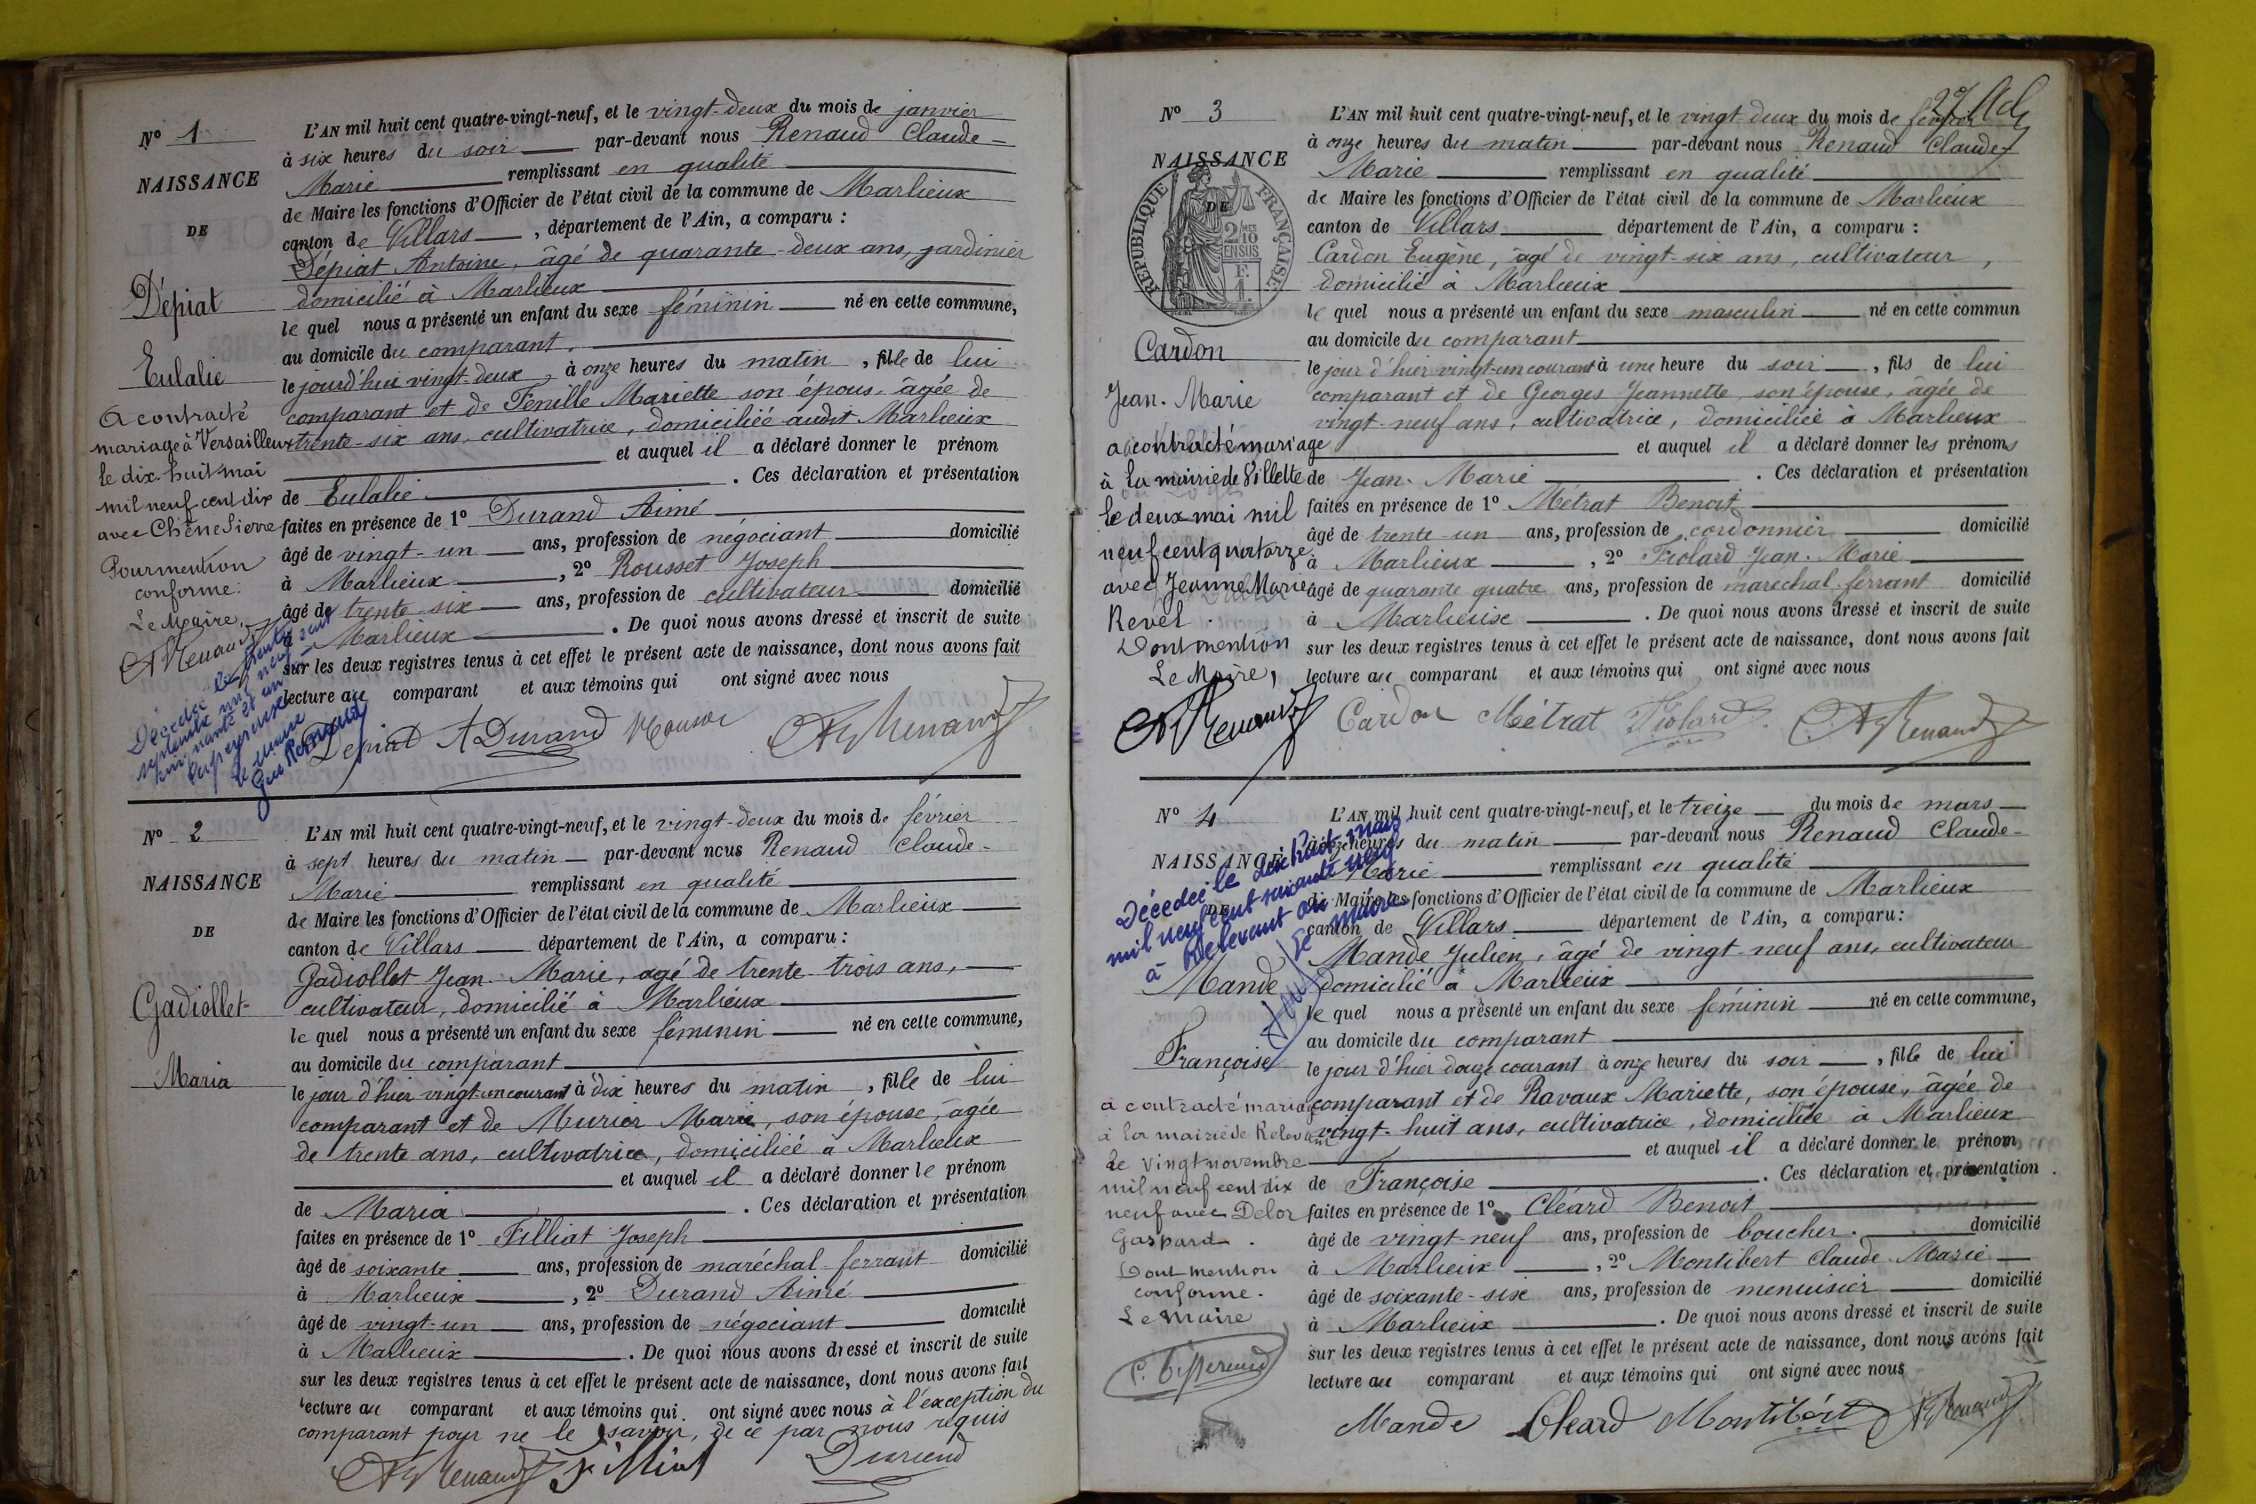 Nº 1
NAISSANCE
DE
Dépiat
Eulalie
A contracté
mariage à Versailleux
le dix-huit mai
mil neuf cent dix
avec Chêne Pierre
Pour mention
conforme:
Le Maire,
L'AN mil huit cent quatre-vingt-neuf, et le vingt-deux du mois de janvier
à six heures du soir par-devant nous Renaud Claude-
Marie remplissant en qualité
de Maire les fonctions d'Officier de l'état civil de la commune de Marlieux
canton de Villars, département de l'Ain, a comparu :
Dépiat Antoine, âgé de quarante-deux ans, jardinier
domicilié à Marlieux
le quel nous a présenté un enfant du sexe féminin né en cette commune,
au domicile du comparant,
le jourd'hui vingt deux, à onze heures du matin, fille de lui
comparant et de Fenille Mariette son épous. âgée de
trente-six ans, cultivatrice, domiciliée audit Marlieux
et auquel il a déclaré donner le prénom
de Eulalie. Ces déclaration et présentation
faites en présence de 1º Durand Aimé
âgé de vingt-un ans, profession de négociant domicilié
à Marlieux, 2º Rousset Joseph
âgé de trente-six ans, profession de cultivateur domicilié
à Marlieux. De quoi nous avons dressé et inscrit de suite
sur les deux registres tenus à cet effet le présent acte de naissance, dont nous avons fait
lecture au comparant et aux témoins qui ont signé avec nous
Dépiat A Durand
Nº 2
NAISSANCE
DE
Gadiollet
Maria
L'AN mil huit cent quatre-vingt-neuf, et le vingt-deux du mois de février
à sept heures du matin par-devant nous Renaud Claude-
Marie remplissant en qualité
de Maire les fonctions d'Officier de l'état civil de la commune de Marlieux
canton de Villars département de l'Ain, a comparu :
Gadiollet Jean-Marie, agé de trente-trois ans,
cultivateur, domicilié à Marlieux
le quel nous a présenté un enfant du sexe féminin né en cette commune,
au domicile du comparant
le jour d'hier vingt-un courant à dix heures du matin, fille de lui
comparant et de Murier Marie, son épouse, âgée
de trente ans, cultivatrice, domiciliée à Marlieux
et auquel il a déclaré donner le prénom
de Maria. Ces déclaration et présentation
faites en présence de 1º Filliat Joseph
âgé de soixante ans, profession de maréchal-ferrant domicilié
à Marlieux, 2º Durand Aimé
âgé de vingt-un ans, profession de négociant domicilié
à Marlieux. De quoi nous avons dressé et inscrit de suite
sur les deux registres tenus à cet effet le présent acte de naissance, dont nous avons fait
lecture au comparant et aux témoins qui ont signé avec nous à l'exception du
comparant pour ne le savoir, de ce par nous requis
Durand
Nº 3
NAISSANCE
DE
REPUBLIQUE FRANÇAISE
2/10 EN SUS
Cardon
Jean-Marie
a contracté mariage
à la mairie de Villette
le deux mai mil
neuf cent quatorze
avec Jeanne Marie
Revel.
Dont mention
Le Maire,
L'AN mil huit cent quatre-vingt-neuf, et le vingt-deux du mois de février
à onze heures du matin par-devant nous Renaud Claude-
Marie remplissant en qualité
de Maire les fonctions d'Officier de l'état civil de la commune de Marlieux
canton de Villars département de l'Ain, a comparu :
Cardon Eugène, âgé de vingt-six ans, cultivateur,
domicilié à Marlieux
le quel nous a présenté un enfant du sexe masculin né en cette commun
au domicile du comparant
le jour d'hier vingt-un courant à une heure du soir, fils de lui
comparant et de Georges Jeannette, son épouse, âgée de
vingt-neuf ans, cultivatrice, domiciliée à Marlieux
et auquel il a déclaré donner les prénoms
de Jean-Marie. Ces déclaration et présentation
faites en présence de 1º Métrat Benoit
âgé de trente-un ans, profession de cordonnier domicilié
à Marlieux, 2º Fiolard Jean-Marie
âgé de quarante quatre ans, profession de maréchal-ferrant domicilié
à Marlieux. De quoi nous avons dressé et inscrit de suite
sur les deux registres tenus à cet effet le présent acte de naissance, dont nous avons fait
lecture au comparant et aux témoins qui ont signé avec nous
Cardon Métrat Fiolard
Nº 4
NAISSANCE
DE
Décédée le dix huit mars
mil neuf cent soixante neuf
à Relevant
Le Maire
Mande
Françoise
a contracté mariage
à la mairie de Relevant
le vingt novembre
mil neuf cent dix
neuf avec Delor
Gaspard.
Dont mention
conforme.
Le Maire
L'AN mil huit cent quatre-vingt-neuf, et le treize du mois de mars
heures du matin par-devant nous Renaud Claude-
Marie remplissant en qualité
de Maire les fonctions d'Officier de l'état civil de la commune de Marlieux
canton de Villars département de l'Ain, a comparu :
Mande Julien, âgé de vingt-neuf ans, cultivateur
domicilié à Marlieux
le quel nous a présenté un enfant du sexe féminin né en cette commune,
au domicile du comparant
le jour d'hier douze courant à onze heures du soir, fille de lui
comparant et de Ravaux Mariette, son épouse, âgée de
vingt-huit ans, cultivatrice, domiciliée à Marlieux
et auquel il a déclaré donner le prénom
de Françoise. Ces déclaration et présentation
faites en présence de 1º Cléard Benoit
âgé de vingt-neuf ans, profession de boucher. domicilié
à Marlieux, 2º Montibert Claude-Marie
âgé de soixante-six ans, profession de menuisier domicilié
à Marlieux. De quoi nous avons dressé et inscrit de suite
sur les deux registres tenus à cet effet le présent acte de naissance, dont nous avons fait
lecture au comparant et aux témoins qui ont signé avec nous
Mande Cléard Montibert